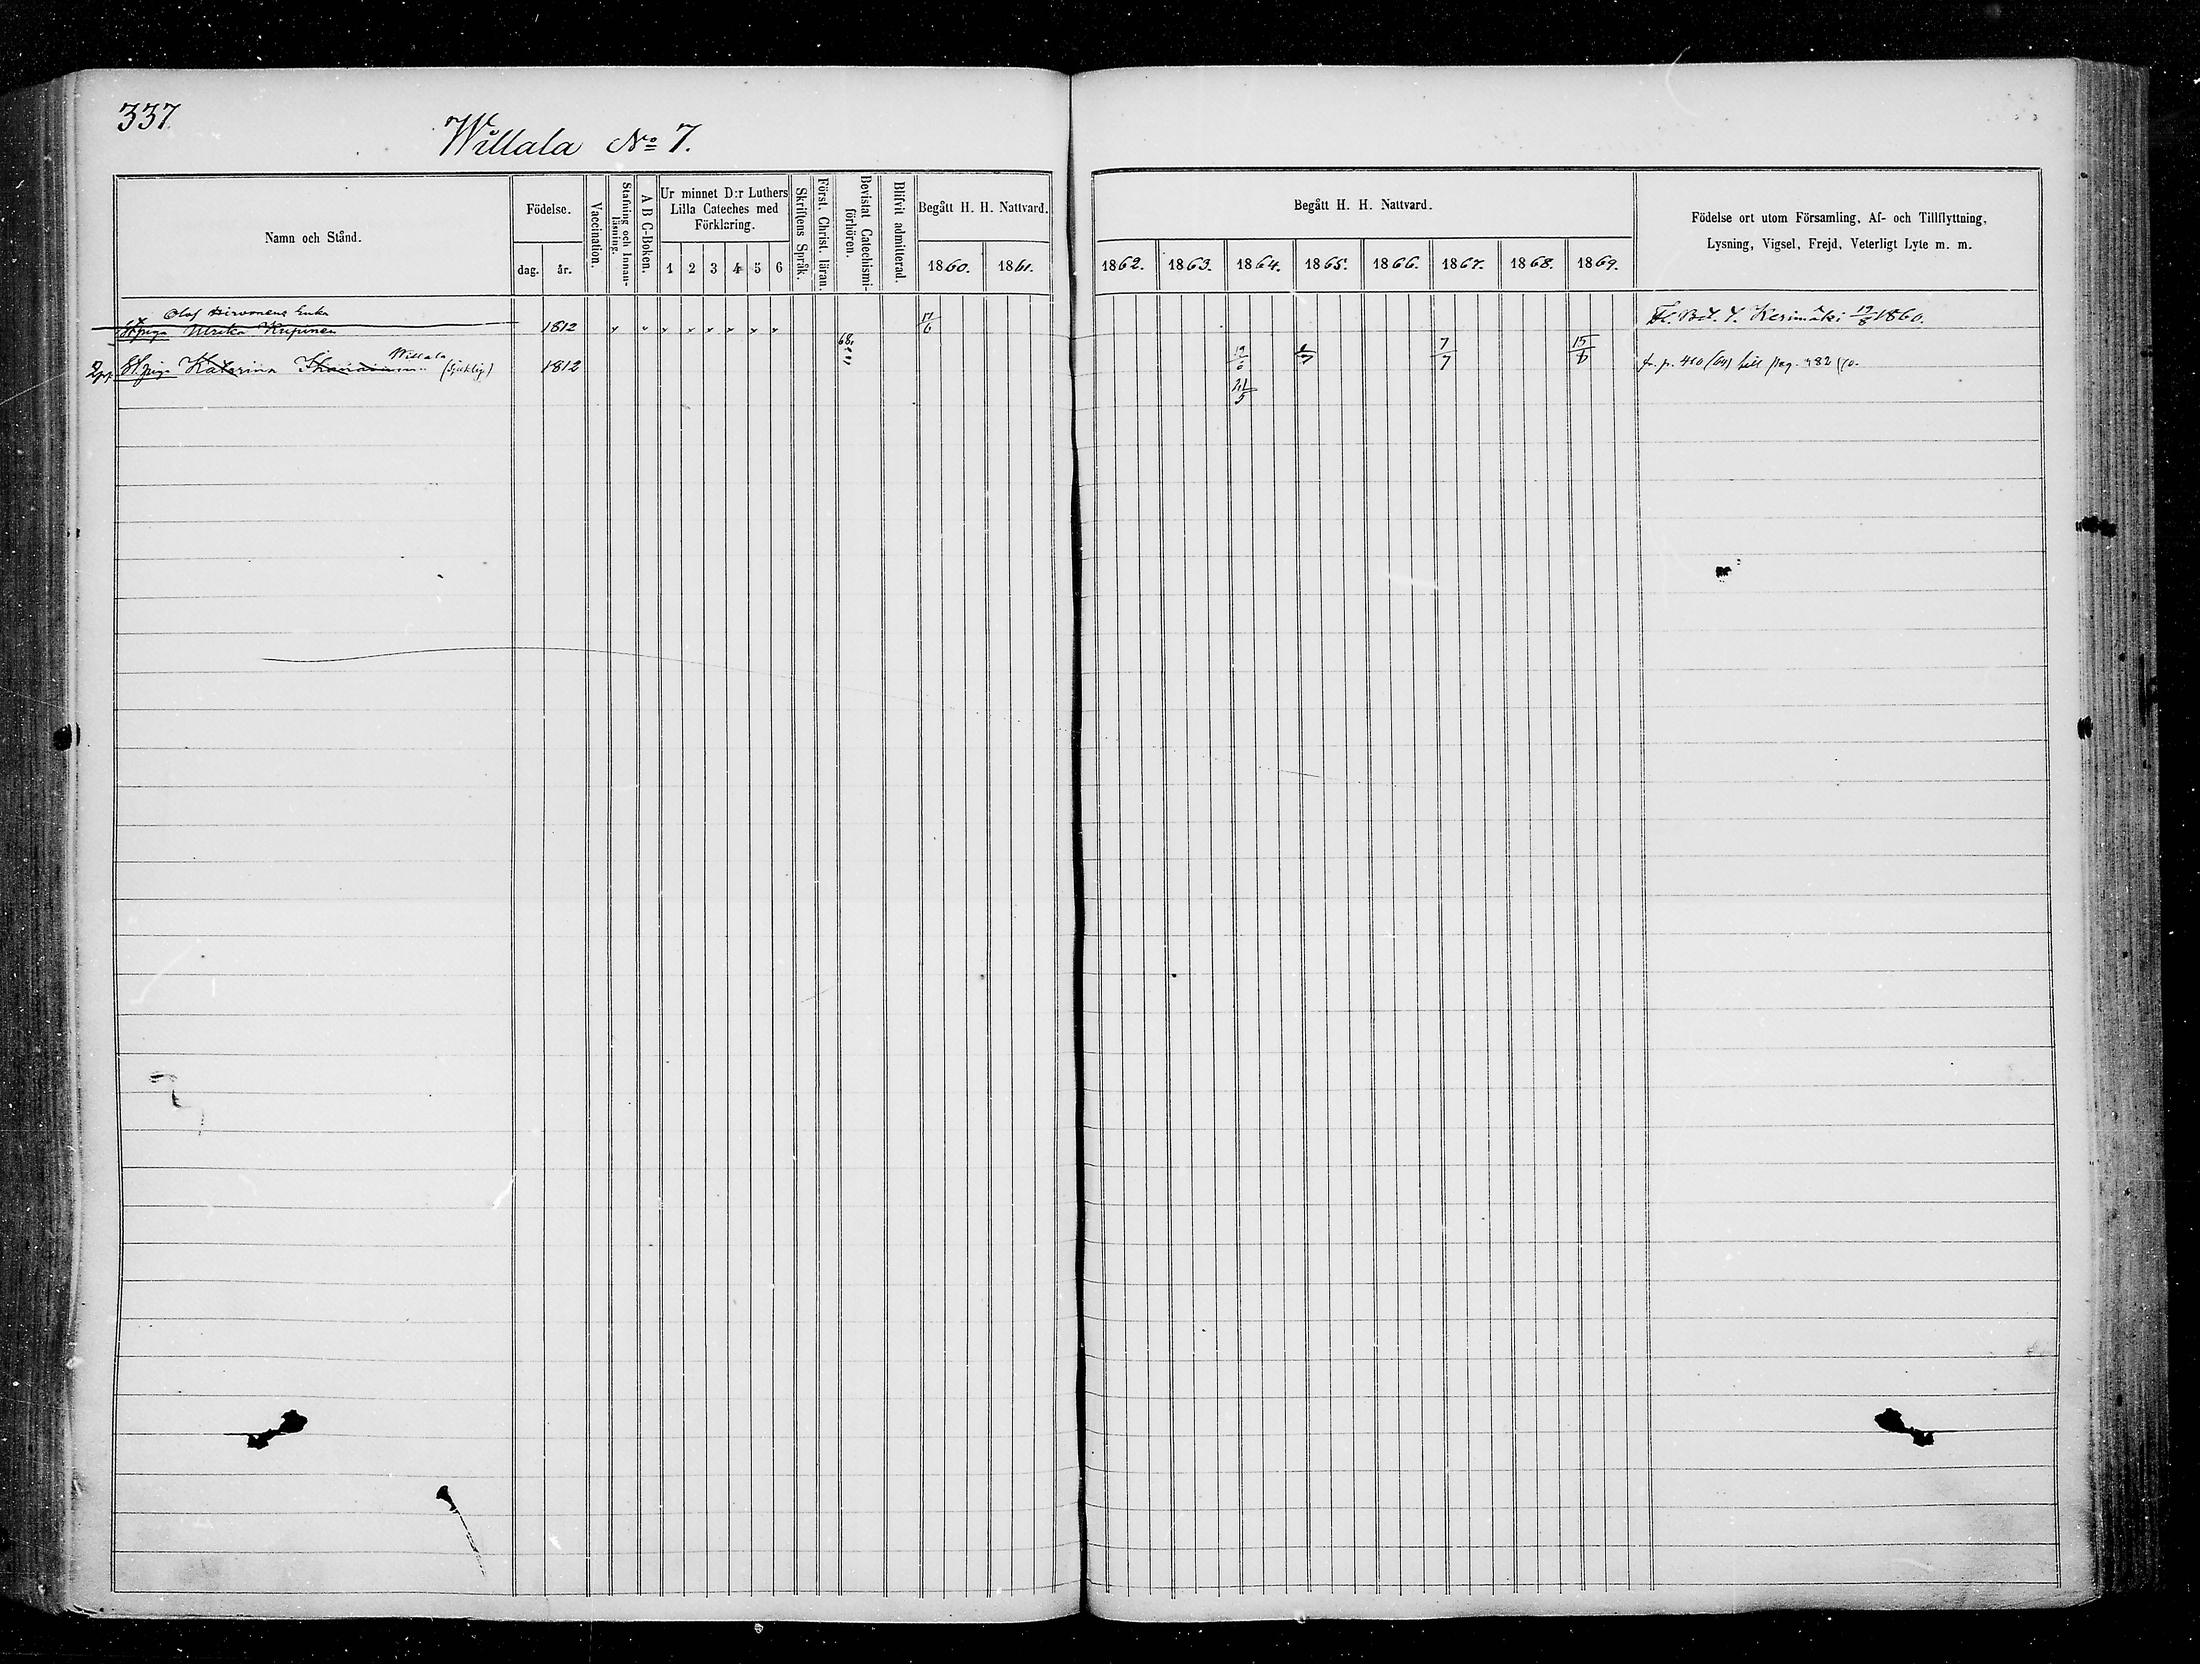 337.
Willala No 7.
Namn och Stånd.
Födelse.
dag.
år.
Vaccination.
Stafning och Innanläsning.
A B C-Boken.
Ur minnet D:r Luthers
Lilla Cateches med
Förklaring.
1 2 3 4 5 6
Skriftens Språk.
Först. Christ. läran.
Bevistat Catechismi-
förhören.
Blifvit admitterad.
Begått H. H. Nattvard.
1860. 1861.
Begått H. H. Nattvard.
1862. 1863. 1864. 1865. 1866. 1867. 1868. 1869.
Födelse ort utom Församling, Af- och Tillflyttning,
Lysning, Vigsel, Frejd, Veterligt Lyte m. m.
Olof Hirvonens Enka
Ulrika Kupinen 1812 17/6 Kerimäki 19/8 1860.
68,
Willala
Katarina (Sjuklig) 1812 19/6 7/7 fr. p. 410/64 till pag. 482
21/5